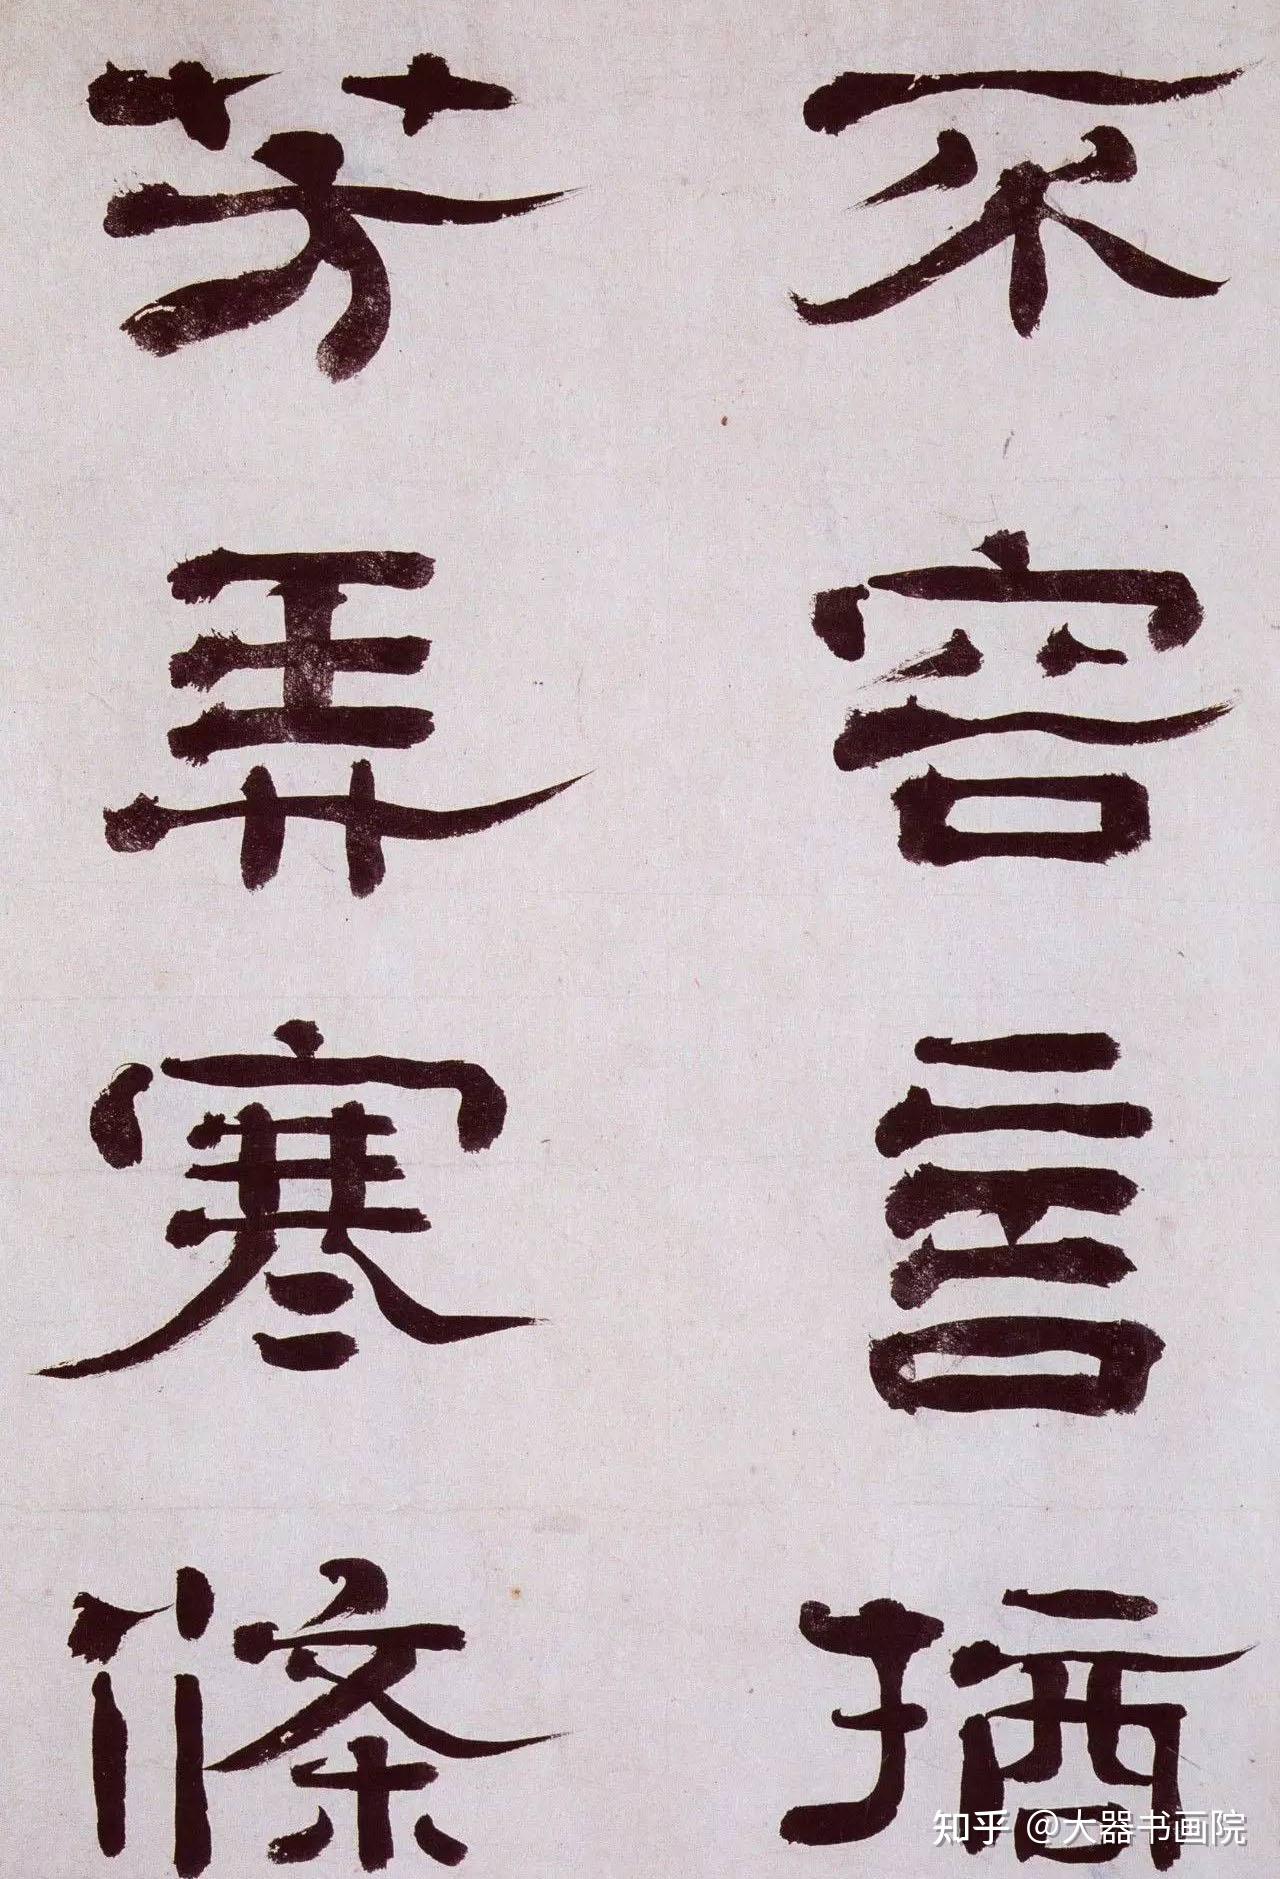 不容言摘
芳弄寒條
知乎 @大器书画院